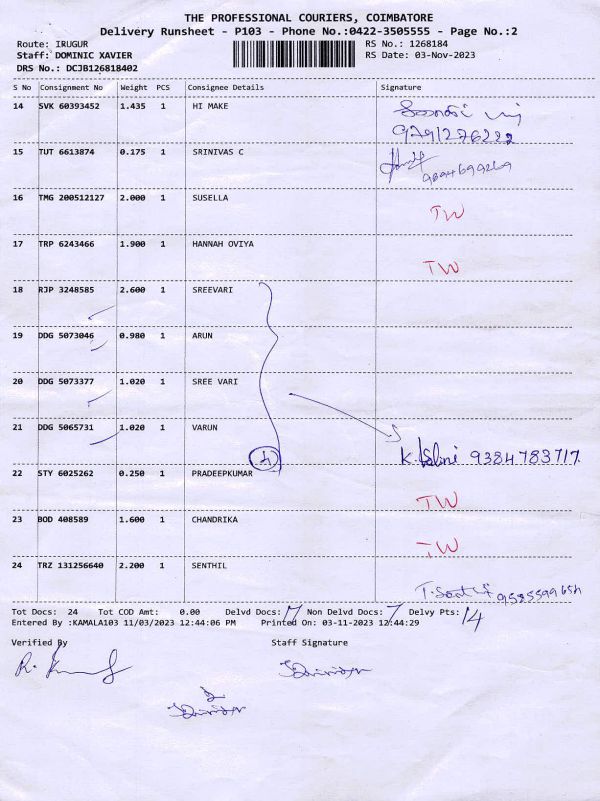 THE PROFESSIONAL COURIERS, COIMBATORE
Delivery Runsheet - P103 - Phone No.:0422-3505555 - Page No.:2
Route: IRUGUR RS No.: 1268184
Staff: DOMINIC XAVIER RS Date: 03-Nov-2023
DRS No.: DCJB126818402
S No Consignment No Weight PCS Consignee Details Signature
14 SVK 60393452 1.435 1 HI MAKE
9791276222
15 TUT 6613874 0.175 1 SRINIVAS C
9894699269
16 TMG 200512127 2.000 1 SUSELLA TW
17 TRP 6243466 1.900 1 HANNAH OVIYA TW
18 RJP 3248585 2.600 1 SREEVARI
19 DDG 5073046 0.980 1 ARUN
20 DDG 5073377 1.020 1 SREE VARI
21 DDG 5065731 1.020 1 VARUN
K. 9384783717
22 STY 6025262 0.250 1 PRADEEPKUMAR TW
23 BOD 408589 1.600 1 CHANDRIKA TW
24 TRZ 131256640 2.200 1 SENTHIL
Tot Docs: 24 Tot COD Amt: 0.00 Delvd Docs: 17 Non Delvd Docs: 7 Delvy Pts: 14
Entered By :KAMALA103 11/03/2023 12:44:06 PM Printed On: 03-11-2023 12:44:29
Verified By Staff Signature